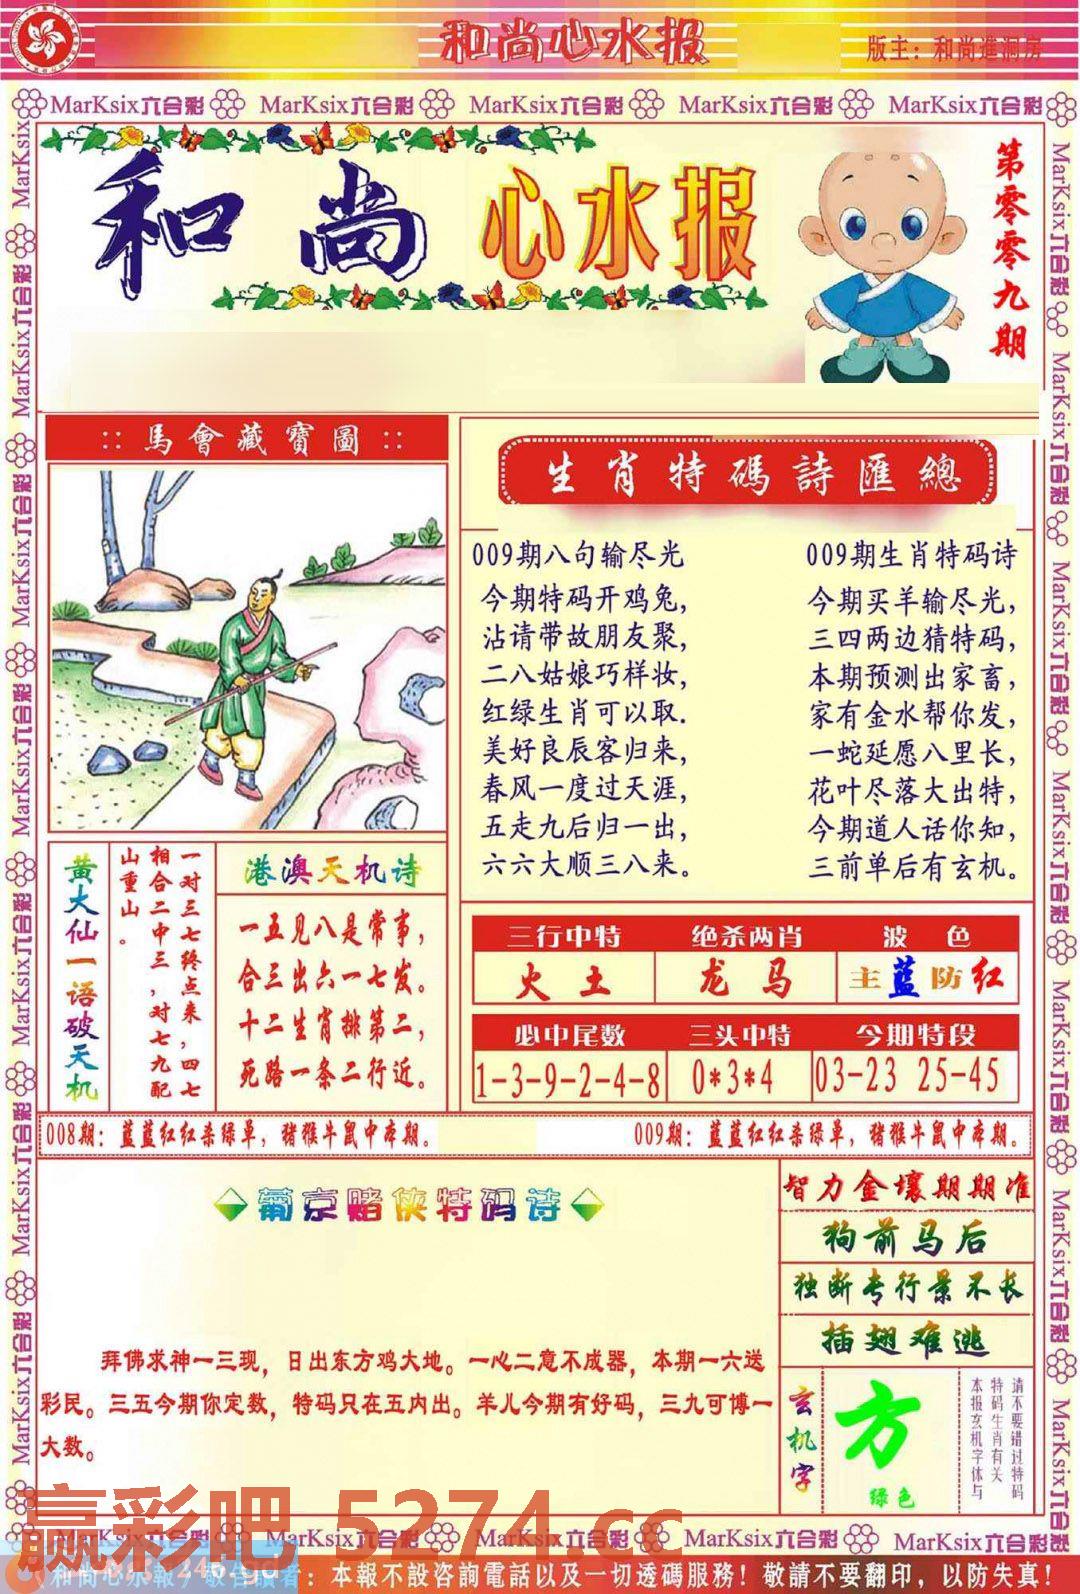 和尚心水报
版主：和尚進洞房
MarKsix六合彩 MarKsix六合彩 MarKsix六合彩 MarKsix六合彩 MarKsix六合彩
和尚 心水报
第零零九期
:: 馬會藏寶圖 ::
生肖特碼詩匯總
009期八句输尽光
今期特码开鸡兔,
沾请带故朋友聚,
二八姑娘巧样妆,
红绿生肖可以取.
美好良辰客归来,
春风一度过天涯,
五走九后归一出,
六六大顺三八来。
009期生肖特码诗
今期买羊输尽光,
三四两边猜特码,
本期预测出家畜,
家有金水帮你发,
一蛇延愿八里长,
花叶尽落大出特,
今期道人话你知,
三前单后有玄机。
黄大仙一语破天机
一对三七终点来,四七
相合二中三,对七九配
山重山。
港澳天机诗
一五见八是常事,
合三出六一七发。
十二生肖排第二,
死路一条二行近。
三行中特 绝杀两肖 波 色
火 土 龙 马 主蓝防红
必中尾数 三头中特 今期特段
1-3-9-2-4-8 0*3*4 03-23 25-45
008期：蓝蓝红红杀绿单，猪猴牛鼠中本期。
009期：蓝蓝红红杀绿单，猪猴牛鼠中本期。
葡京赌侠特码诗
拜佛求神一三现，日出东方鸡大地。一心二意不成器，本期一六送
彩民。三五今期你定数，特码只在五内出。羊儿今期有好码，三九可博一
大数。
智力金壤期期准
狗前马后
独断专行景不长
插翅难逃
玄机字
方
绿色
请不要错过特码
特码生肖有关
本报玄机字体与
赢彩吧 5274.cc
MarKsix六合彩 MarKsix六合彩 MarKsix六合彩 MarKsix六合彩
和尚心水報／敬告讀者：本報不設咨詢電話以及一切透碼服務！敬請不要翻印，以防失真！